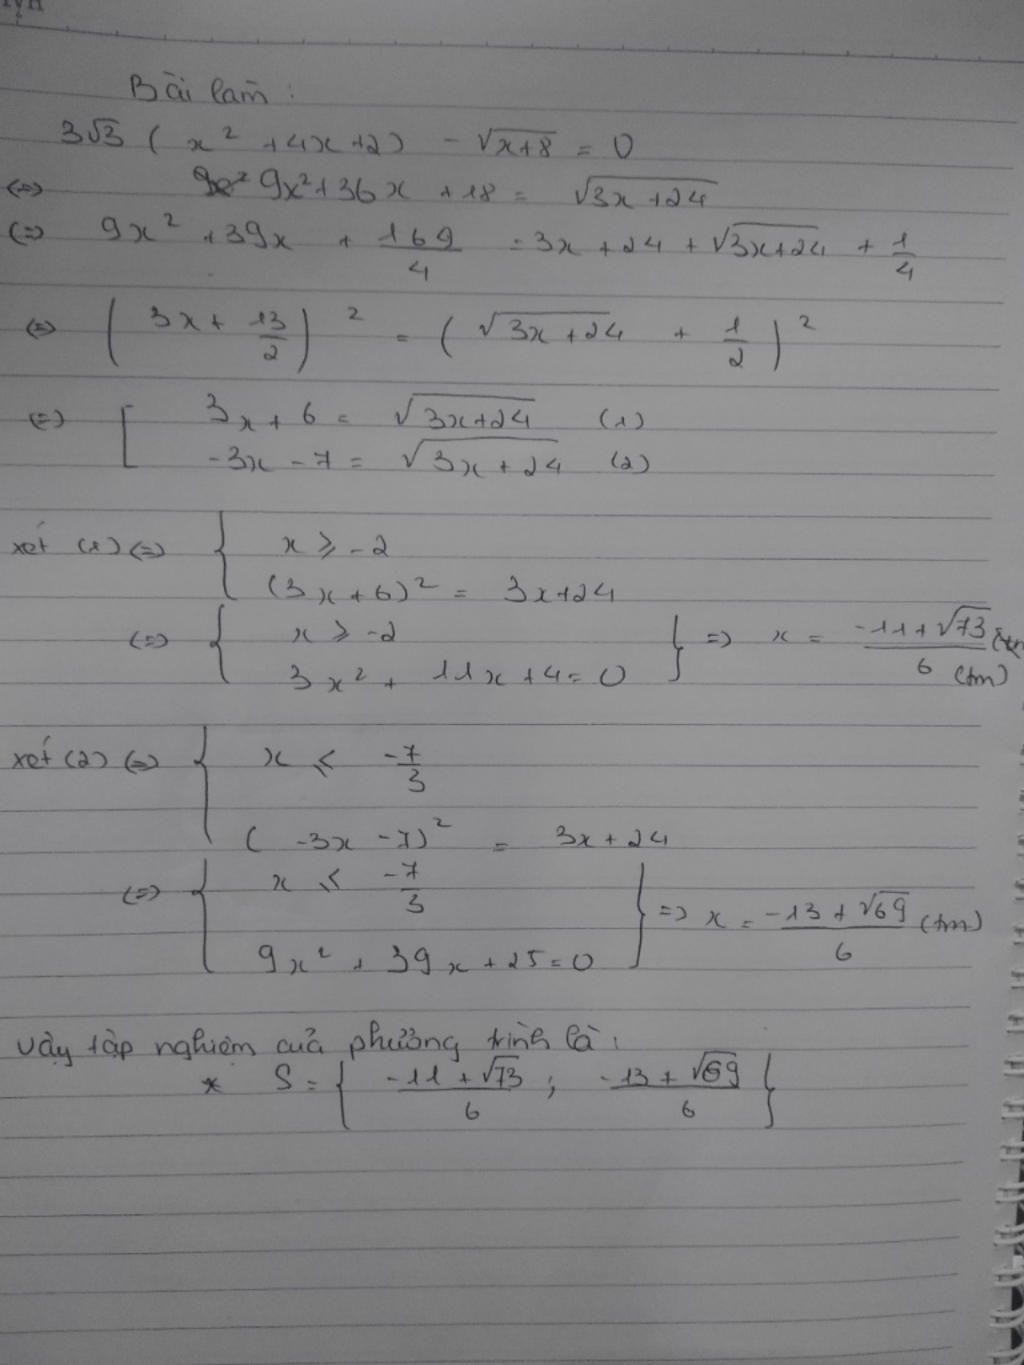 Bài làm :
3√3 ( x² + 4x + 2 ) - √(x+8) = 0
(=) 9x² + 36x + 18 = √(3x+24)
(=) 9x² + 39x + 169/4 = 3x + 24 + √(3x+24) + 1/4
(=) ( 3x + 13/2 )² = ( √(3x+24) + 1/2 )²
(=) [ 3x + 6 = √(3x+24) (1)
-3x - 7 = √(3x+24) (2)
xét (1) (=) { x ⩾ -2
(3x+6)² = 3x+24
(=) { x ⩾ -2
3x² + 11x + 4 = 0 } => x = (-11+√73)/6 (tm)
xét (2) (=) { x ⩽ -7/3
( -3x - 7)² = 3x + 24
(=) { x ⩽ -7/3
9x² + 39x + 25 = 0 } => x = (-13 + √69)/6 (tm)
Vậy tập nghiệm của phương trình là :
* S = { (-11 + √73)/6 ; (-13 + √69)/6 }